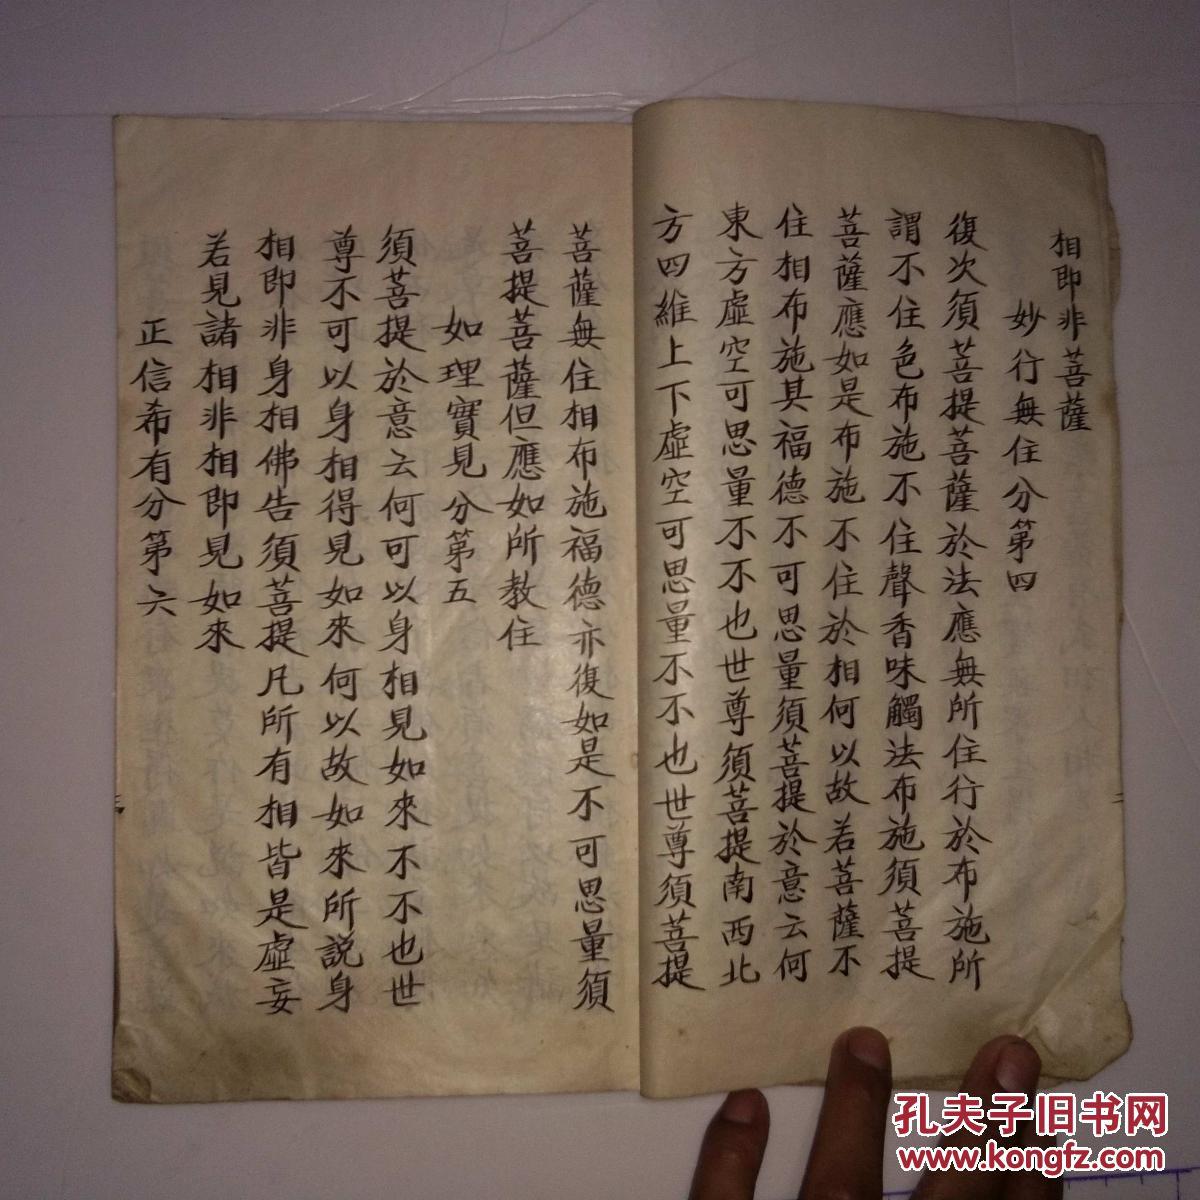 相即非菩薩
妙行無住分第四
復次須菩提菩薩於法應無所住行於布施所
謂不住色布施不住聲香味觸法布施須菩提
菩薩應如是布施不住於相何以故若菩薩不
住相布施其福德不可思量須菩提於意云何
東方虛空可思量不不也世尊須菩提南西北
方四維上下虛空可思量不不也世尊須菩提
菩薩無住相布施福德亦復如是不可思量須
菩提菩薩但應如所教住
如理實見分第五
須菩提於意云何可以身相見如來不不也世
尊不可以身相得見如來何以故如來所說身
相即非身相佛告須菩提凡所有相皆是虛妄
若見諸相非相即見如來
正信希有分第六
孔夫子旧书网
www.kongfz.com